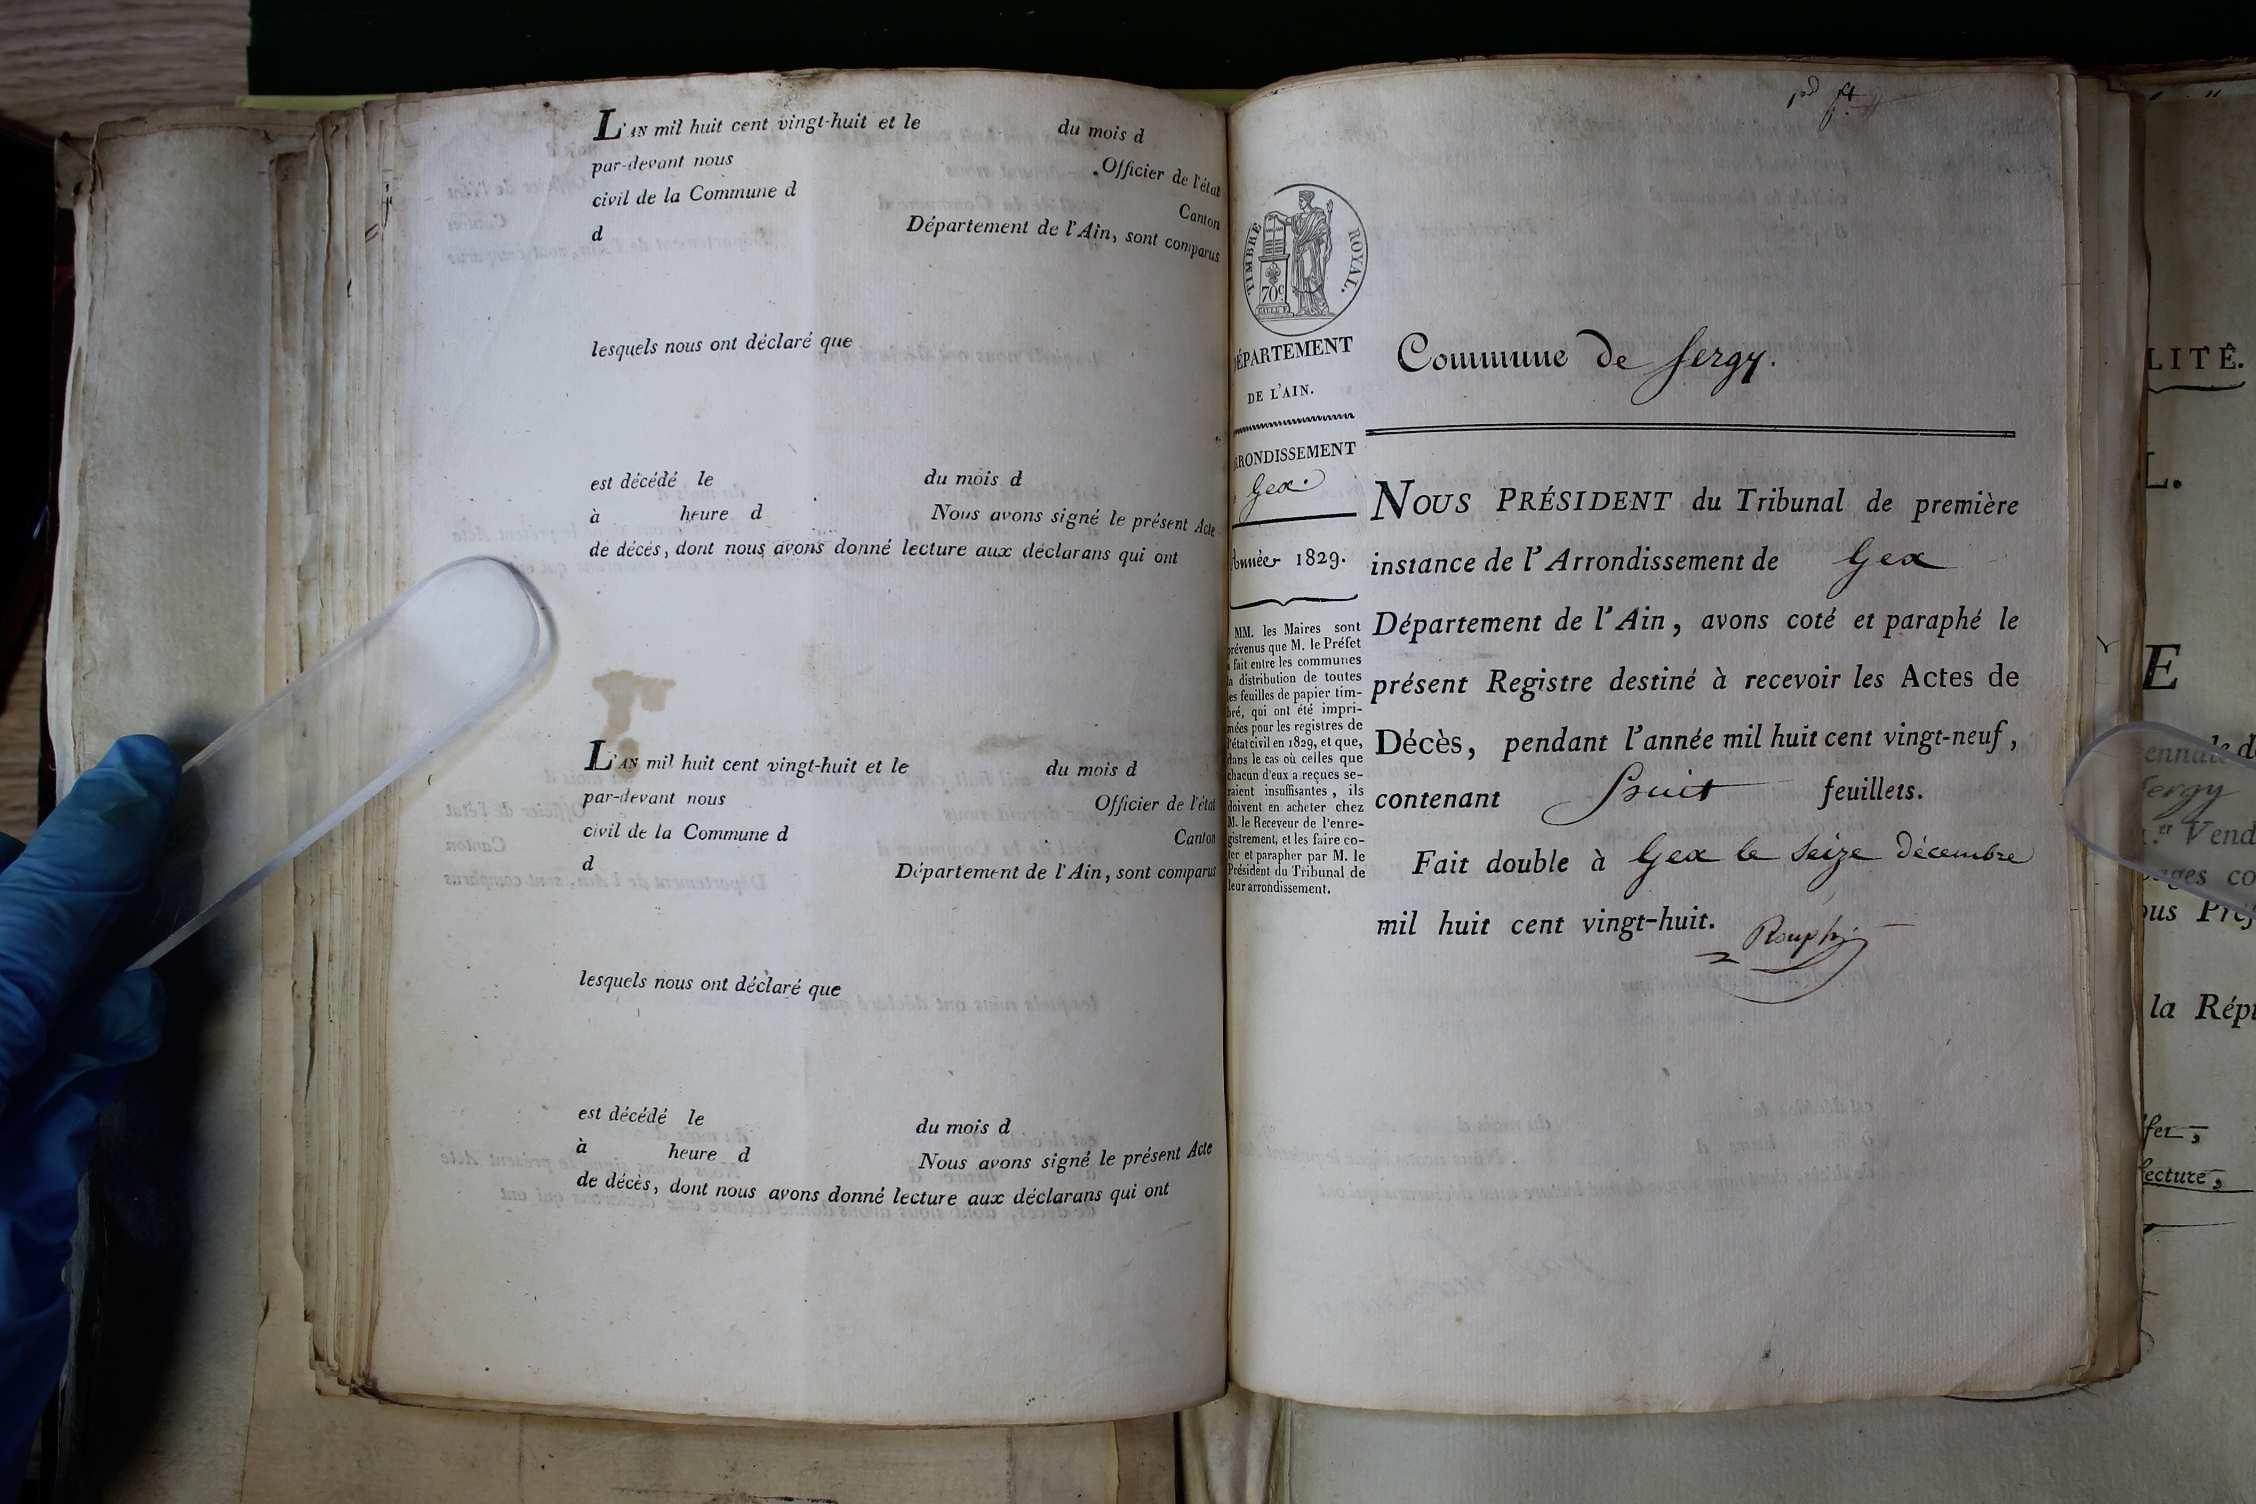 L'AN mil huit cent vingt-huit et le du mois d
par-devant nous Officier de l'état
civil de la Commune d Canton
d Département de l'Ain, sont comparus
lesquels nous ont déclaré que
est décédé le du mois d
à heure d Nous avons signé le présent Acte
de décès, dont nous avons donné lecture aux déclarans qui ont
L'AN mil huit cent vingt-huit et le du mois d
par-devant nous Officier de l'état
civil de la Commune d Canton
d Département de l'Ain, sont comparus
lesquels nous ont déclaré que
est décédé le du mois d
à heure d Nous avons signé le présent Acte
de décès, dont nous avons donné lecture aux déclarans qui ont
TIMBRE ROYAL.
70c
DÉPARTEMENT
DE L'AIN.
ARRONDISSEMENT
Gex.
Année 1829.
MM. les Maires sont
prévenus que M. le Préfet
a fait entre les communes
la distribution de toutes
les feuilles de papier tim-
bré, qui ont été impri-
mées pour les registres de
l'état civil en 1829, et que,
dans le cas où celles que
chacun d'eux a reçues se-
raient insuffisantes, ils
doivent en acheter chez
M. le Receveur de l'enre-
gistrement, et les faire co-
ter et parapher par M. le
Président du Tribunal de
leur arrondissement.
Commune de Sergy.
NOUS PRÉSIDENT du Tribunal de première
instance de l'Arrondissement de Gex
Département de l'Ain, avons coté et paraphé le
présent Registre destiné à recevoir les Actes de
Décès, pendant l'année mil huit cent vingt-neuf,
contenant huit feuillets.
Fait double à Gex le seize décembre
mil huit cent vingt-huit.
LITÉ.
L.
E
ennale d
Sergy
er Vend
ages co
ous Préf
la Répu
fer,
fecture,